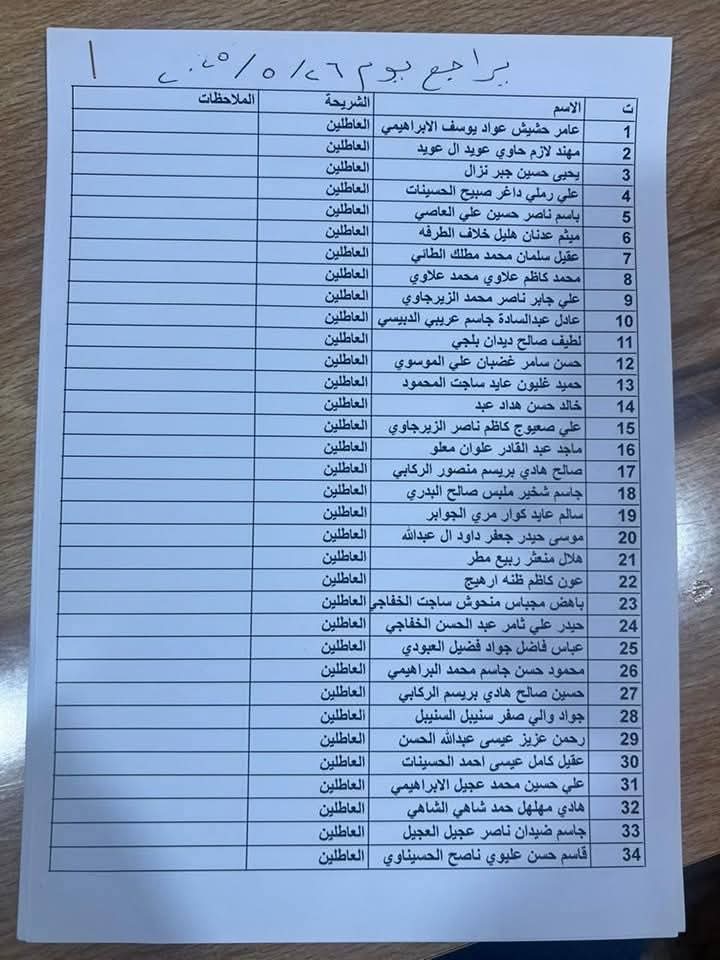 يراجع يوم ٢٦/٥/٢٠٢٥
١
ت الاسم الشريحة الملاحظات
1 عامر حشيش عواد يوسف الابراهيمي العاطلين
2 مهند لازم حاوي عويد ال عويد العاطلين
3 يحيى حسين جبر نزال العاطلين
4 علي رملي داغر صبيح الحسينات العاطلين
5 باسم ناصر حسين علي العاصي العاطلين
6 ميثم عدنان هليل خلاف الطرفه العاطلين
7 عقيل سلمان محمد مطلك الطائي العاطلين
8 محمد كاظم علاوي محمد علاوي العاطلين
9 علي جابر ناصر محمد الزيرجاوي العاطلين
10 عادل عبدالسادة جاسم عريبي الدبيسي العاطلين
11 لطيف صالح ديدان بلجي العاطلين
12 حسن سامر غضبان علي الموسوي العاطلين
13 حميد غليون عايد ساجت المحمود العاطلين
14 خالد حسن هداد عبد العاطلين
15 علي صعيوج كاظم ناصر الزيرجاوي العاطلين
16 ماجد عبد القادر علوان معلو العاطلين
17 صالح هادي بريسم منصور الركابي العاطلين
18 جاسم شخير ملبس صالح البدري العاطلين
19 سالم عايد كوار مري الجوابر العاطلين
20 موسى حيدر جعفر داود ال عبدالله العاطلين
21 هلال منعثر ربيع مطر العاطلين
22 عون كاظم ظنه ارهيج العاطلين
23 باهض مجباس منحوش ساجت الخفاجي العاطلين
24 حيدر علي ثامر عبد الحسن الخفاجي العاطلين
25 عباس فاضل جواد فضيل العبودي العاطلين
26 محمود حسن جاسم محمد البراهيمي العاطلين
27 حسين صالح هادي بريسم الركابي العاطلين
28 جواد والي صفر سنيبل السنيبل العاطلين
29 رحمن عزيز عيسى عبدالله الحسن العاطلين
30 عقيل كامل عيسى احمد الحسينات العاطلين
31 علي حسين محمد عجيل الابراهيمي العاطلين
32 هادي مهلهل حمد شاهي الشاهي العاطلين
33 جاسم ضيدان ناصر عجيل العجيل العاطلين
34 قاسم حسن عليوي ناصح الحسيناوي العاطلين